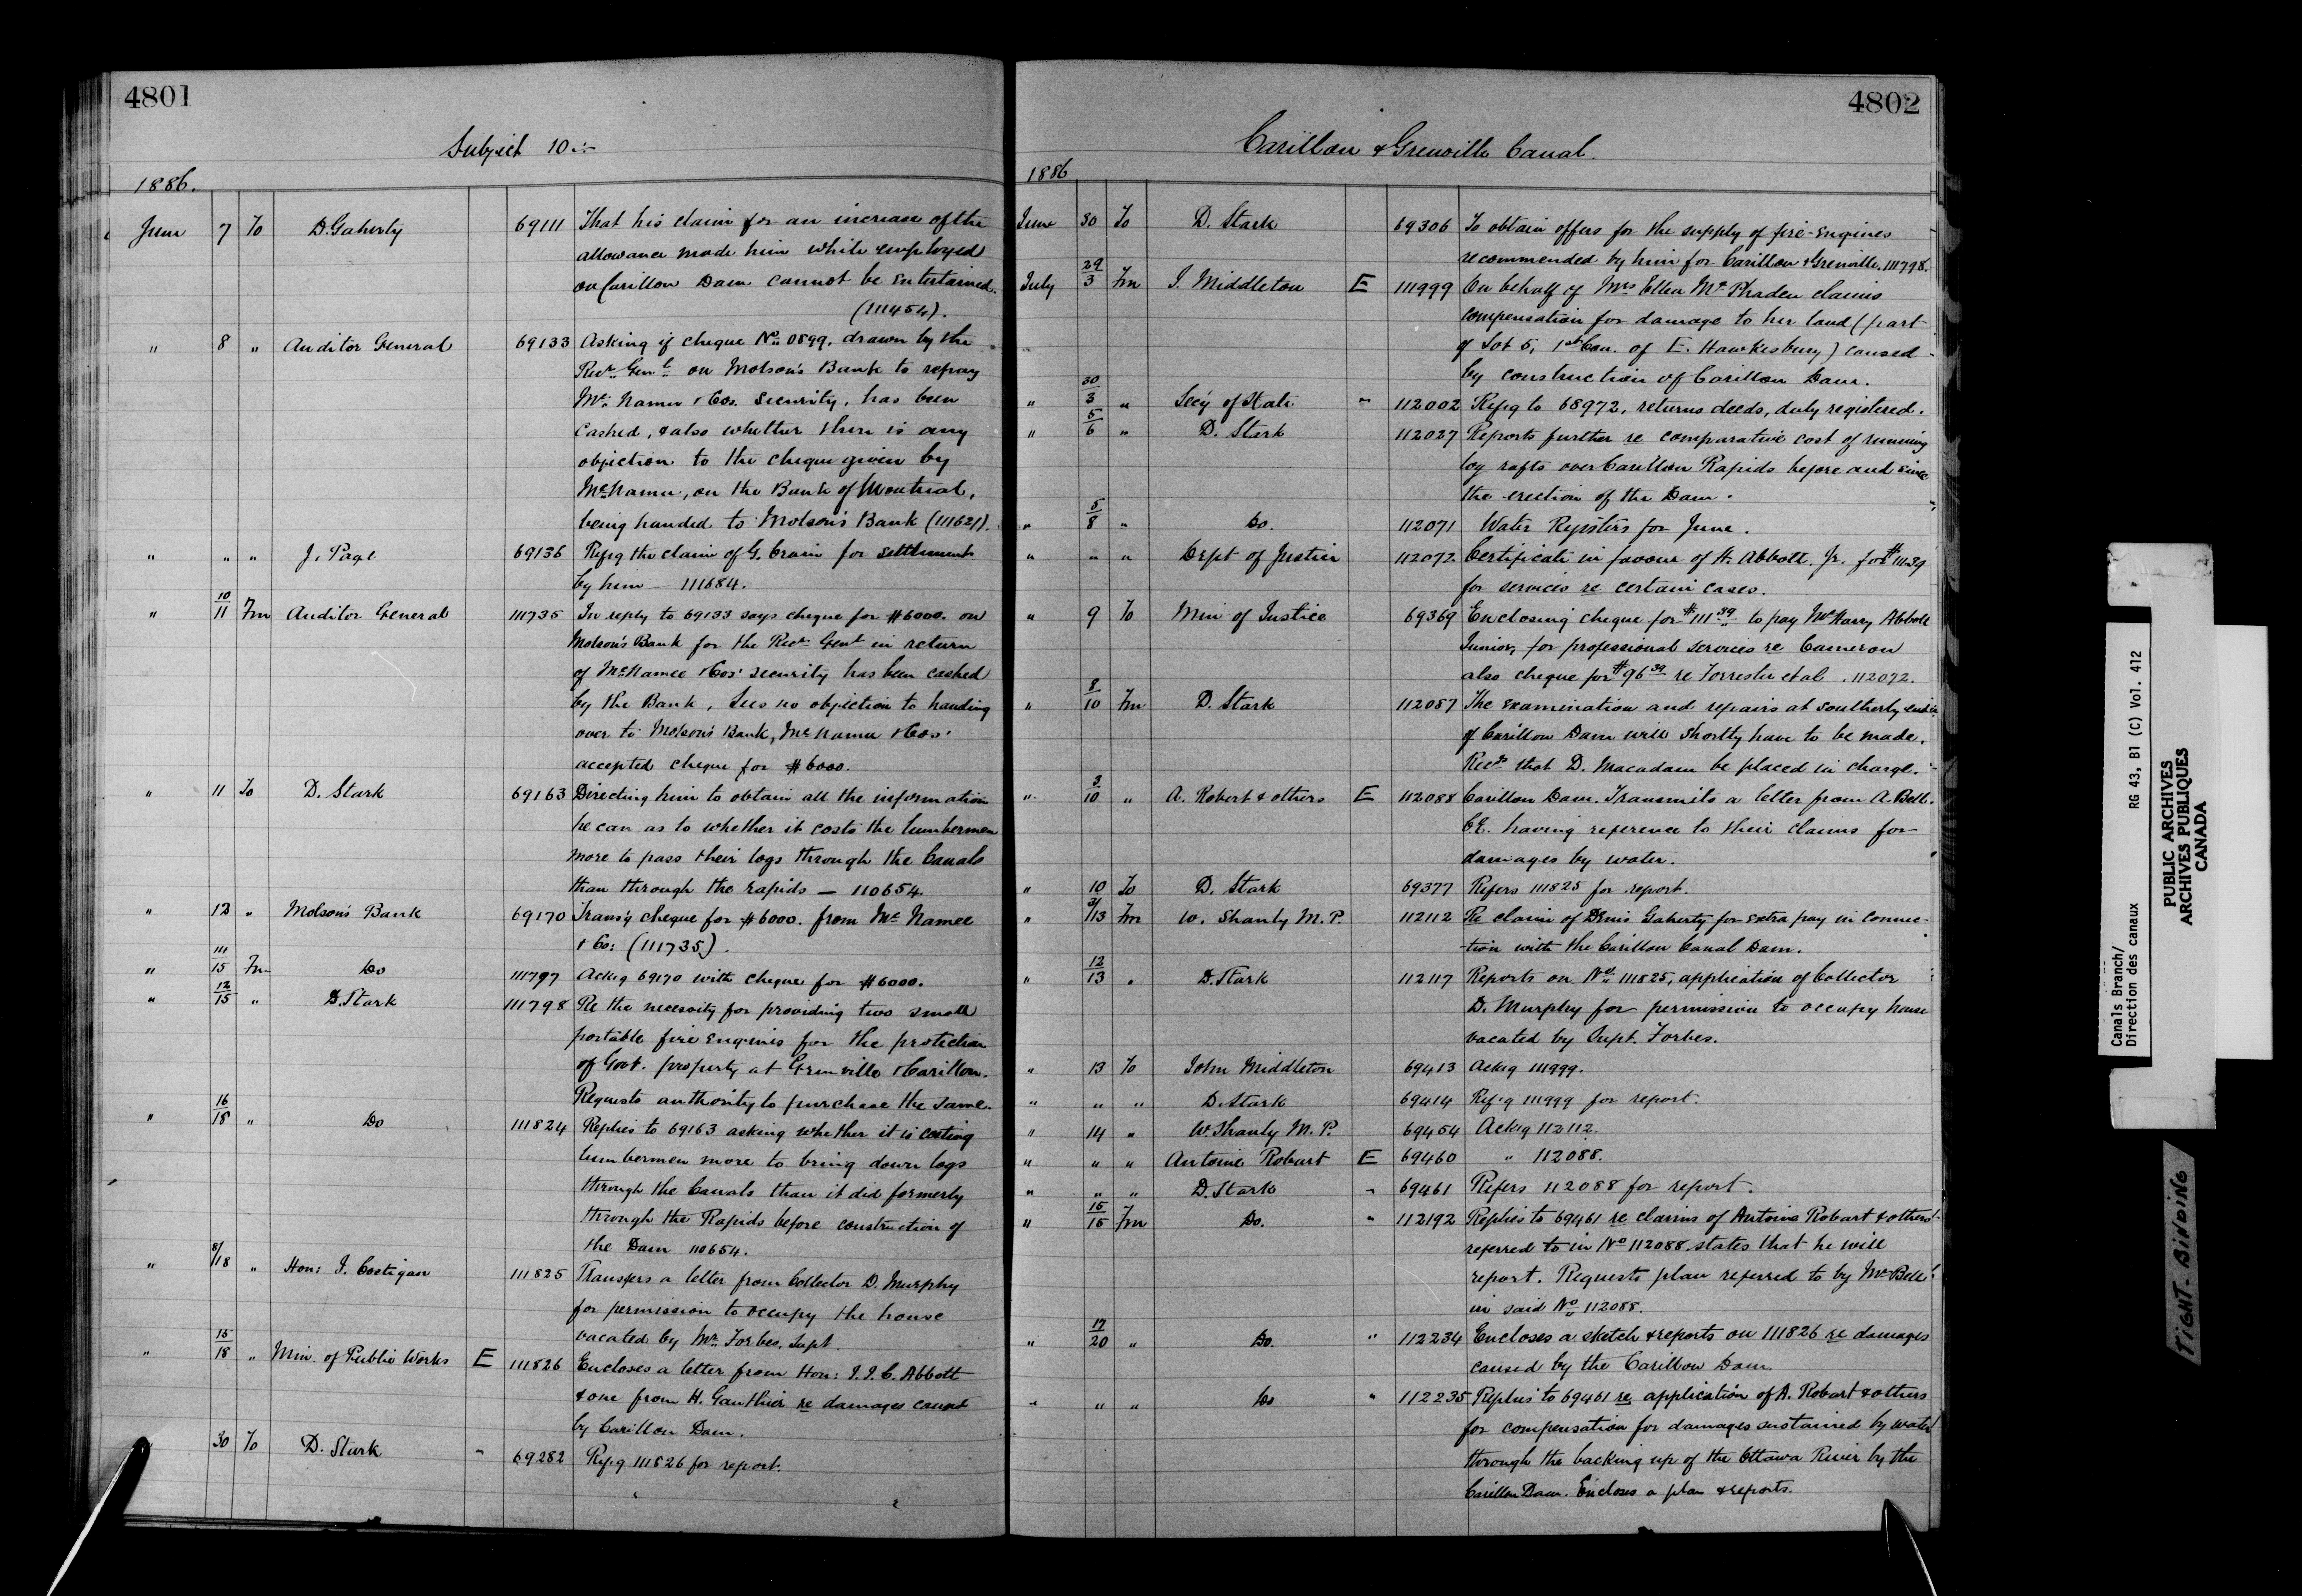 4801
Subject 10
1886.
June 7 To D. Gaherty 69111 That his claim for an increase of the
allowance made him while employed
on Carillon Dam cannot be entertained.
(111454).
" 8 " Auditor General 69133 Asking if cheque No. 0899, drawn by the
Recr. Genl. on Molson's Bank to repay
McNamee & Cos. security, has been
cashed, & also whether there is any
objection to the cheque given by
McNamee, on the Bank of Montreal,
being handed to Molson's Bank (111621).
" " " J. Page 69136 Refrg the claim of G. Crain for settlement
by him — 111684.
" 10/11 Fm Auditor General 111735 In reply to 69133 says cheque for $6000. on
Molson's Bank for the Recr. Genl in return
of McNamee & Cos' security has been cashed
by the Bank, Sees no objection to handing
over to Molson's Bank, McNamee & Cos'
accepted cheque for $6000.
" 11 To D. Stark 69163 Directing him to obtain all the information
he can as to whether it costs the lumbermen
more to pass their logs through the Canals
than through the rapids — 110654.
" 12 " Molson's Bank 69170 Trans'g cheque for $6000. from McNamee
& Co: (111735).
" 11/15 Fm Do 111797 Ackg 69170 with cheque for $6000.
" 12/15 " D. Stark 111798 Re the necessity for providing two small
portable fire engines for the protection
of Govt. property at Grenville & Carillon.
Requests authority to purchase the same.
" 16/18 " Do 111824 Replies to 69163 asking whether it is costing
lumbermen more to bring down logs
through the Canals than it did formerly
through the Rapids before construction of
the Dam 110654.
" 8/18 " Hon: J. Costigan 111825 Transfers a letter from Collector D. Murphy
for permission to occupy the house
vacated by Mr. Forbes, Supt.
" 15/18 " Min. of Public Works E 111826 Encloses a letter from Hon: J. J. C. Abbott
& one from H. Gauthier re damages caused
by Carillon Dam.
" 30 To D. Stark " 69282 Refrg 111826 for report.
4802
Carillon & Grenville Canal.
1886
June 30 To D. Stark 69306 To obtain offers for the supply of fire-engines
recommended by him for Carillon & Grenville. 111798.
July 29/3 Fm J. Middleton E 111999 On behalf of Mrs Ellen McPhaden claims
compensation for damage to her land (part
of Lot 5, 1st Con. of E. Hawkesbury) caused
by construction of Carillon Dam.
" 30/3 " Sec'y of State " 112002 Refrg to 68972, returns deeds, duly registered.
" 5/6 " D. Stark 112027 Reports further re comparative cost of running
log rafts over Carillon Rapids before and since
the erection of the Dam.
" 5/8 " Do. 112071 Water Registers for June.
" " " Dept of Justice 112072 Certificate in favour of H. Abbott. Jr. for $111.39
for services re certain cases.
" 9 To Min of Justice 69369 Enclosing cheque for $111 39 to pay Mr Harry Abbott
Junior, for professional services re Cameron
also cheque for $96 39 re Forrester et al. 112072.
" 8/10 Fm D. Stark 112087 The examination and repairs at southerly end
of Carillon Dam will shortly have to be made,
Recds that D. Macadam be placed in charge.
" 3/10 " A. Robert & others E 112088 Carillon Dam. Transmits a letter from A. Bell.
C.E. having reference to their claims for
damages by water.
" 10 To D. Stark 69377 Refers 111825 for report.
" 9/13 Fm W. Shanly M.P. 112112 Re claim of Denis Gaherty for extra pay in connec-
-tion with the Carillon Canal Dam.
" 12/13 " D. Stark 112117 Reports on No. 111825, application of Collector
D. Murphy for permission to occupy house
vacated by Supt. Forbes.
" 13 To John Middleton 69413 Ackg 111999.
" " " D. Stark 69414 Ref'g 111999 for report.
" 14 " W. Shanly M.P. 69454 Ackg 112112.
" " " Antoine Robart E 69460 " 112088.
" " " D. Stark " 69461 Refers 112088 for report.
" 15/15 Fm Do. " 112192 Replies to 69461 re claims of Antoine Robart & others
referred to in No 112088 states that he will
report. Requests plan referred to by Mr Bell
in said No. 112088.
" 17/20 " Do. " 112234 Encloses a sketch & reports on 111826 re damages
caused by the Carillon Dam.
" " " Do " 112235 Replies to 69461 re application of A. Robart & others
for compensation for damages sustained by water
through the backing up of the Ottawa River by the
Carillon Dam. Encloses a plan & reports.
Canals Branch/
Direction des canaux RG 43, B1 (C) Vol. 412
PUBLIC ARCHIVES
ARCHIVES PUBLIQUES
CANADA
TIGHT BINDING